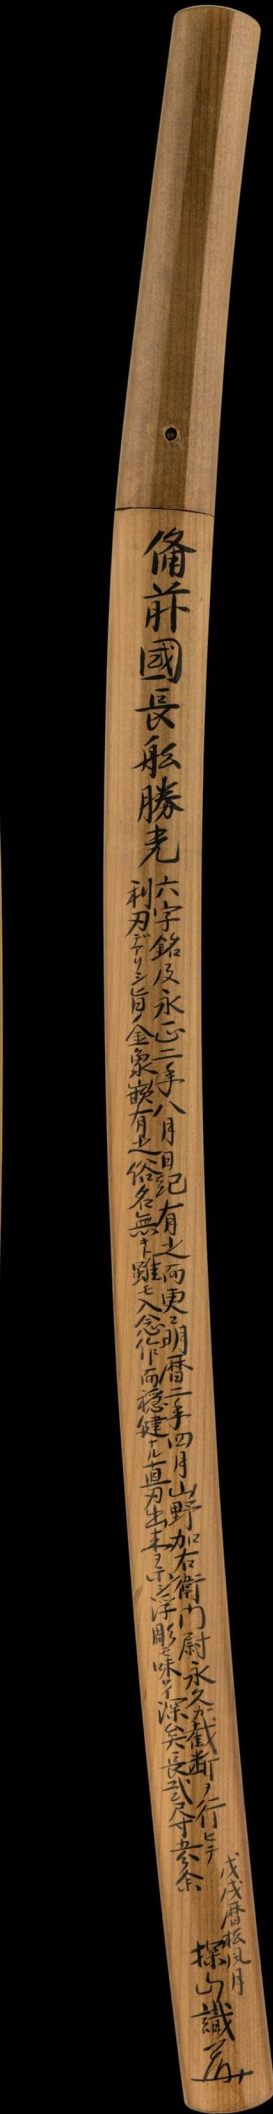 備前國長舩勝光
六字銘及永正二年八月日紀有之而更ニ明暦二年四月山野加右衛門尉永久ガ截断ヲ行ヒテ
利刃デアリシ旨ノ金象嵌有之俗名無キ雖モ入念作而穏健ナル直刃出来ヲ示シ浮彫モ味ワイ深矣長弐尺寸余
戊戌暦松風月
探山識